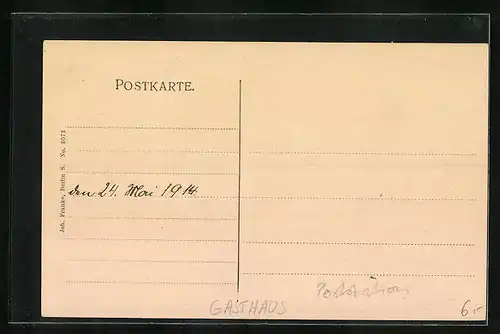 POSTKARTE.
Joh. Franke, Berlin S. No. 2073
den 24. Mai 1914
Poststation
GASTHAUS
6.-